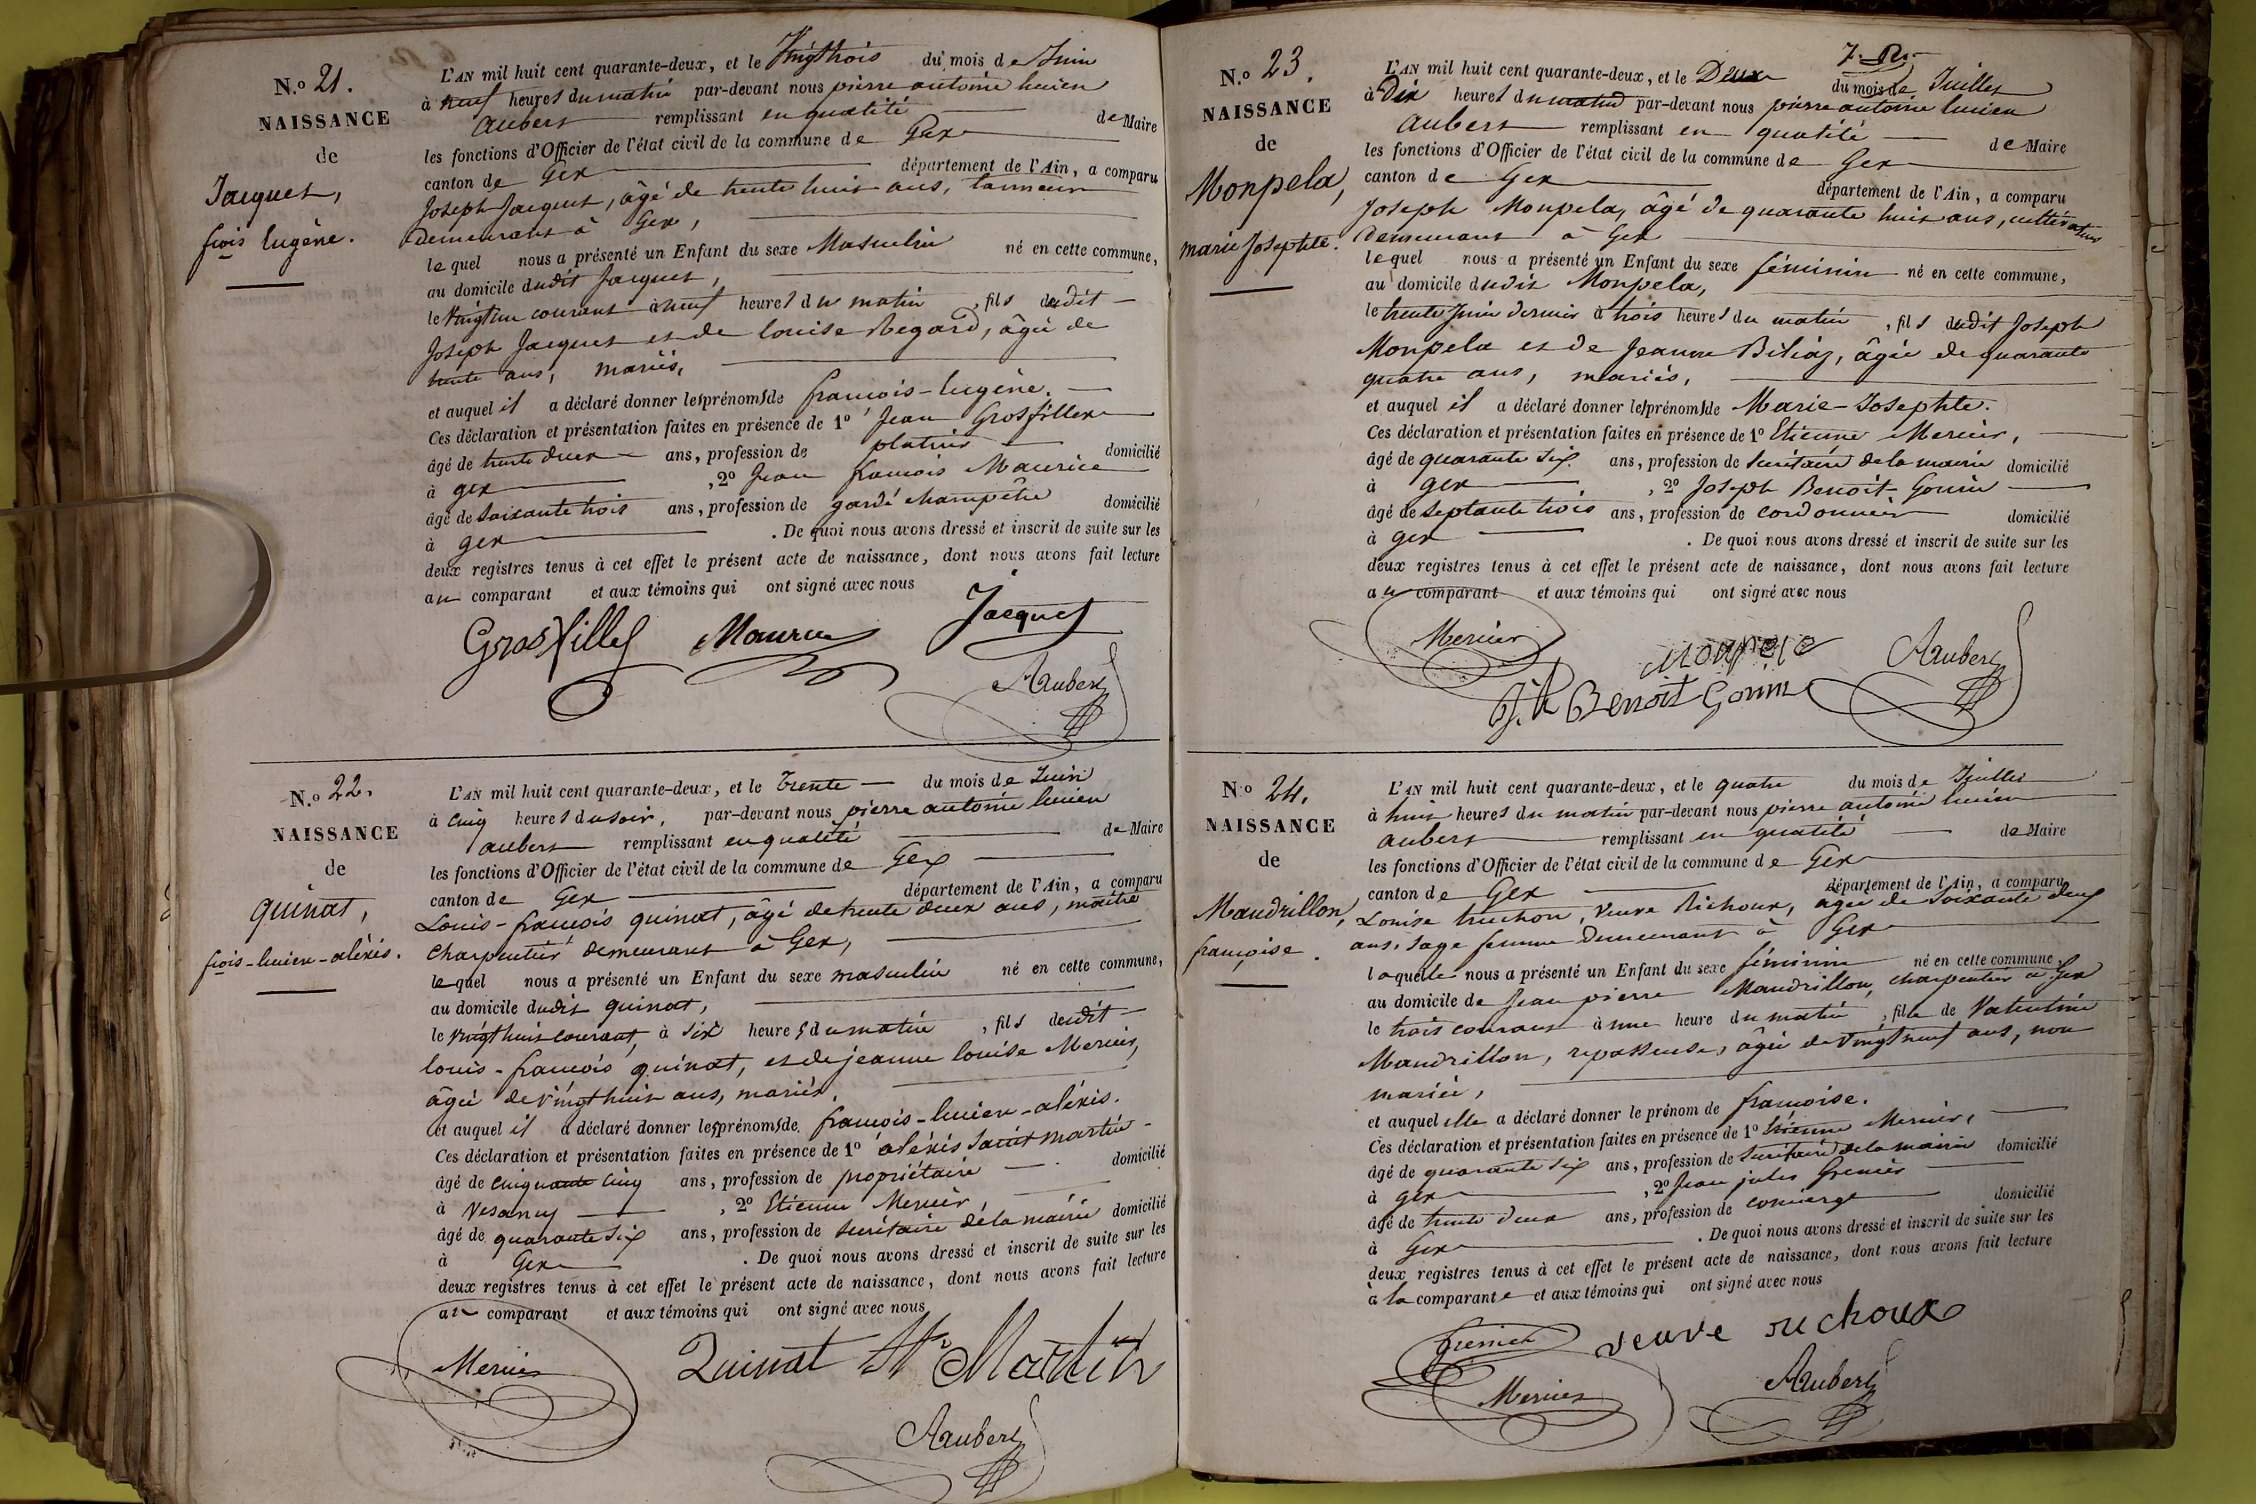 N.o 21.
NAISSANCE
de
Jacquet,
fcois Eugène.
L'AN mil huit cent quarante-deux, et le Vingt trois du mois de Juin
à neuf heures du matin par-devant nous pierre antoine lucien
aubert remplissant en qualité de Maire
les fonctions d'Officier de l'état civil de la commune de Gex
canton de Gex département de l'Ain, a comparu
Joseph Jacquet, âgé de trente huit ans, tanneur
demeurant à Gex,
lequel nous a présenté un Enfant du sexe Masculin né en cette commune,
au domicile dudit Jacquet,
le vingt un courant à neuf heures du matin, fils dudit
Joseph Jacquet et de louise Regard, âgée de
trente ans, mariés,
et auquel il a déclaré donner les prénoms de françois-Eugène.
Ces déclaration et présentation faites en présence de 1o Jean Grosfillex
âgé de trente deux ans, profession de platrier domicilié
à gex, 2o Jean françois Maurice
âgé de soixante trois ans, profession de garde champêtre domicilié
à gex. De quoi nous avons dressé et inscrit de suite sur les
deux registres tenus à cet effet le présent acte de naissance, dont nous avons fait lecture
au comparant et aux témoins qui ont signé avec nous
Jacquet
Grosfillex Maurice
Aubert
N.o 22.
NAISSANCE
de
quinat,
fcois-lucien-aléxis.
L'AN mil huit cent quarante-deux, et le Trente du mois de Juin
à cinq heures du soir, par-devant nous pierre antoine lucien
aubert remplissant en qualité de Maire
les fonctions d'Officier de l'état civil de la commune de Gex
canton de Gex département de l'Ain, a comparu
Louis-françois quinat, âgé de trente deux ans, maître
charpentier demeurant à Gex,
lequel nous a présenté un Enfant du sexe masculin né en cette commune,
au domicile dudit quinat,
le vingt huit courant, à six heures du matin, fils dudit
louis-françois quinat, et de jeanne louise Mercier,
âgée de vingt huit ans, mariés,
et auquel il a déclaré donner les prénoms de françois-lucien-aléxis.
Ces déclaration et présentation faites en présence de 1o aléxis saint martin
âgé de cinquante cinq ans, profession de propriétaire domicilié
à Vesancy, 2o Etienne Mercier,
âgé de quarante six ans, profession de secrétaire de la mairie domicilié
à Gex. De quoi nous avons dressé et inscrit de suite sur les
deux registres tenus à cet effet le présent acte de naissance, dont nous avons fait lecture
au comparant et aux témoins qui ont signé avec nous
Mercier Quinat St Martin
Aubert
N.o 23.
NAISSANCE
de
Monpela,
marie Josephte.
L'AN mil huit cent quarante-deux, et le Deux du mois de Juillet
à Dix heures du matin par-devant nous pierre antoine lucien
aubert remplissant en qualité de Maire
les fonctions d'Officier de l'état civil de la commune de Gex
canton de Gex département de l'Ain, a comparu
Joseph Monpela, âgé de quarante huit ans, cultivateur
demeurant à Gex
lequel nous a présenté un Enfant du sexe féminin né en cette commune,
au domicile dudit Monpela,
le trente Juin dernier à trois heures du matin, fils dudit Joseph
Monpela et de Jeanne Béliaz, âgée de quarante
quatre ans, mariés,
et auquel il a déclaré donner les prénoms de Marie-Josephte.
Ces déclaration et présentation faites en présence de 1o Etienne Mercier,
âgé de quarante six ans, profession de secrétaire de la mairie domicilié
à gex, 2o Joseph Benoit Gonin
âgé de septante trois ans, profession de cordonnier domicilié
à gex. De quoi nous avons dressé et inscrit de suite sur les
deux registres tenus à cet effet le présent acte de naissance, dont nous avons fait lecture
au comparant et aux témoins qui ont signé avec nous
Mercier Monpela Aubert
Benoit Gonin
N.o 24.
NAISSANCE
de
Mandrillon,
françoise.
L'AN mil huit cent quarante-deux, et le quatre du mois de Juillet
à huit heures du matin par-devant nous pierre antoine lucien
aubert remplissant en qualité de Maire
les fonctions d'Officier de l'état civil de la commune de Gex
canton de Gex département de l'Ain, a comparu
Louise truchon, veuve Richoux, âgée de soixante deux
ans, sage femme demeurant à Gex
laquelle nous a présenté un Enfant du sexe féminin né en cette commune,
au domicile de Jean pierre Mandrillon, charpentier à Gex
le trois courant à une heure du matin, fille de Valentine
Mandrillon, repasseuse, âgée de vingt neuf ans, non
mariée,
et auquel elle a déclaré donner le prénom de françoise.
Ces déclaration et présentation faites en présence de 1o Etienne Mercier,
âgé de quarante six ans, profession de secrétaire de la mairie domicilié
à gex, 2o Jean jules Grenier
âgé de trente deux ans, profession de concierge domicilié
à Gex. De quoi nous avons dressé et inscrit de suite sur les
deux registres tenus à cet effet le présent acte de naissance, dont nous avons fait lecture
à la comparante et aux témoins qui ont signé avec nous
Grenier veuve richoux
Mercier Aubert